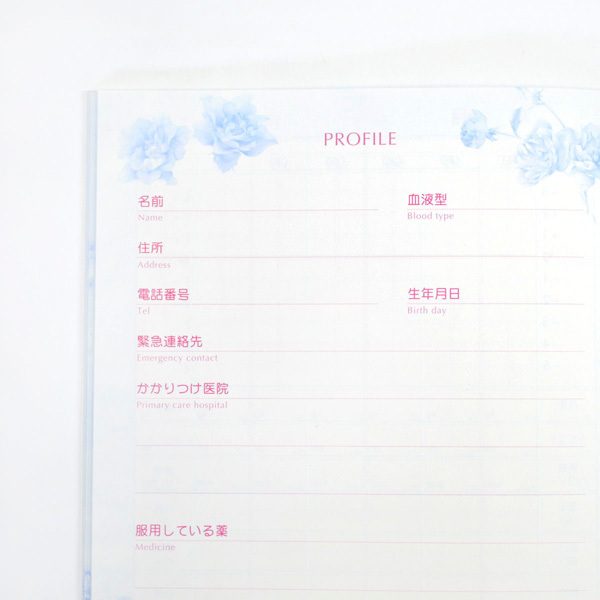 PROFILE
名前
Name
血液型
Blood type
住所
Address
電話番号
Tel
生年月日
Birth day
緊急連絡先
Emergency contact
かかりつけ医院
Primary care hospital
服用している薬
Medicine